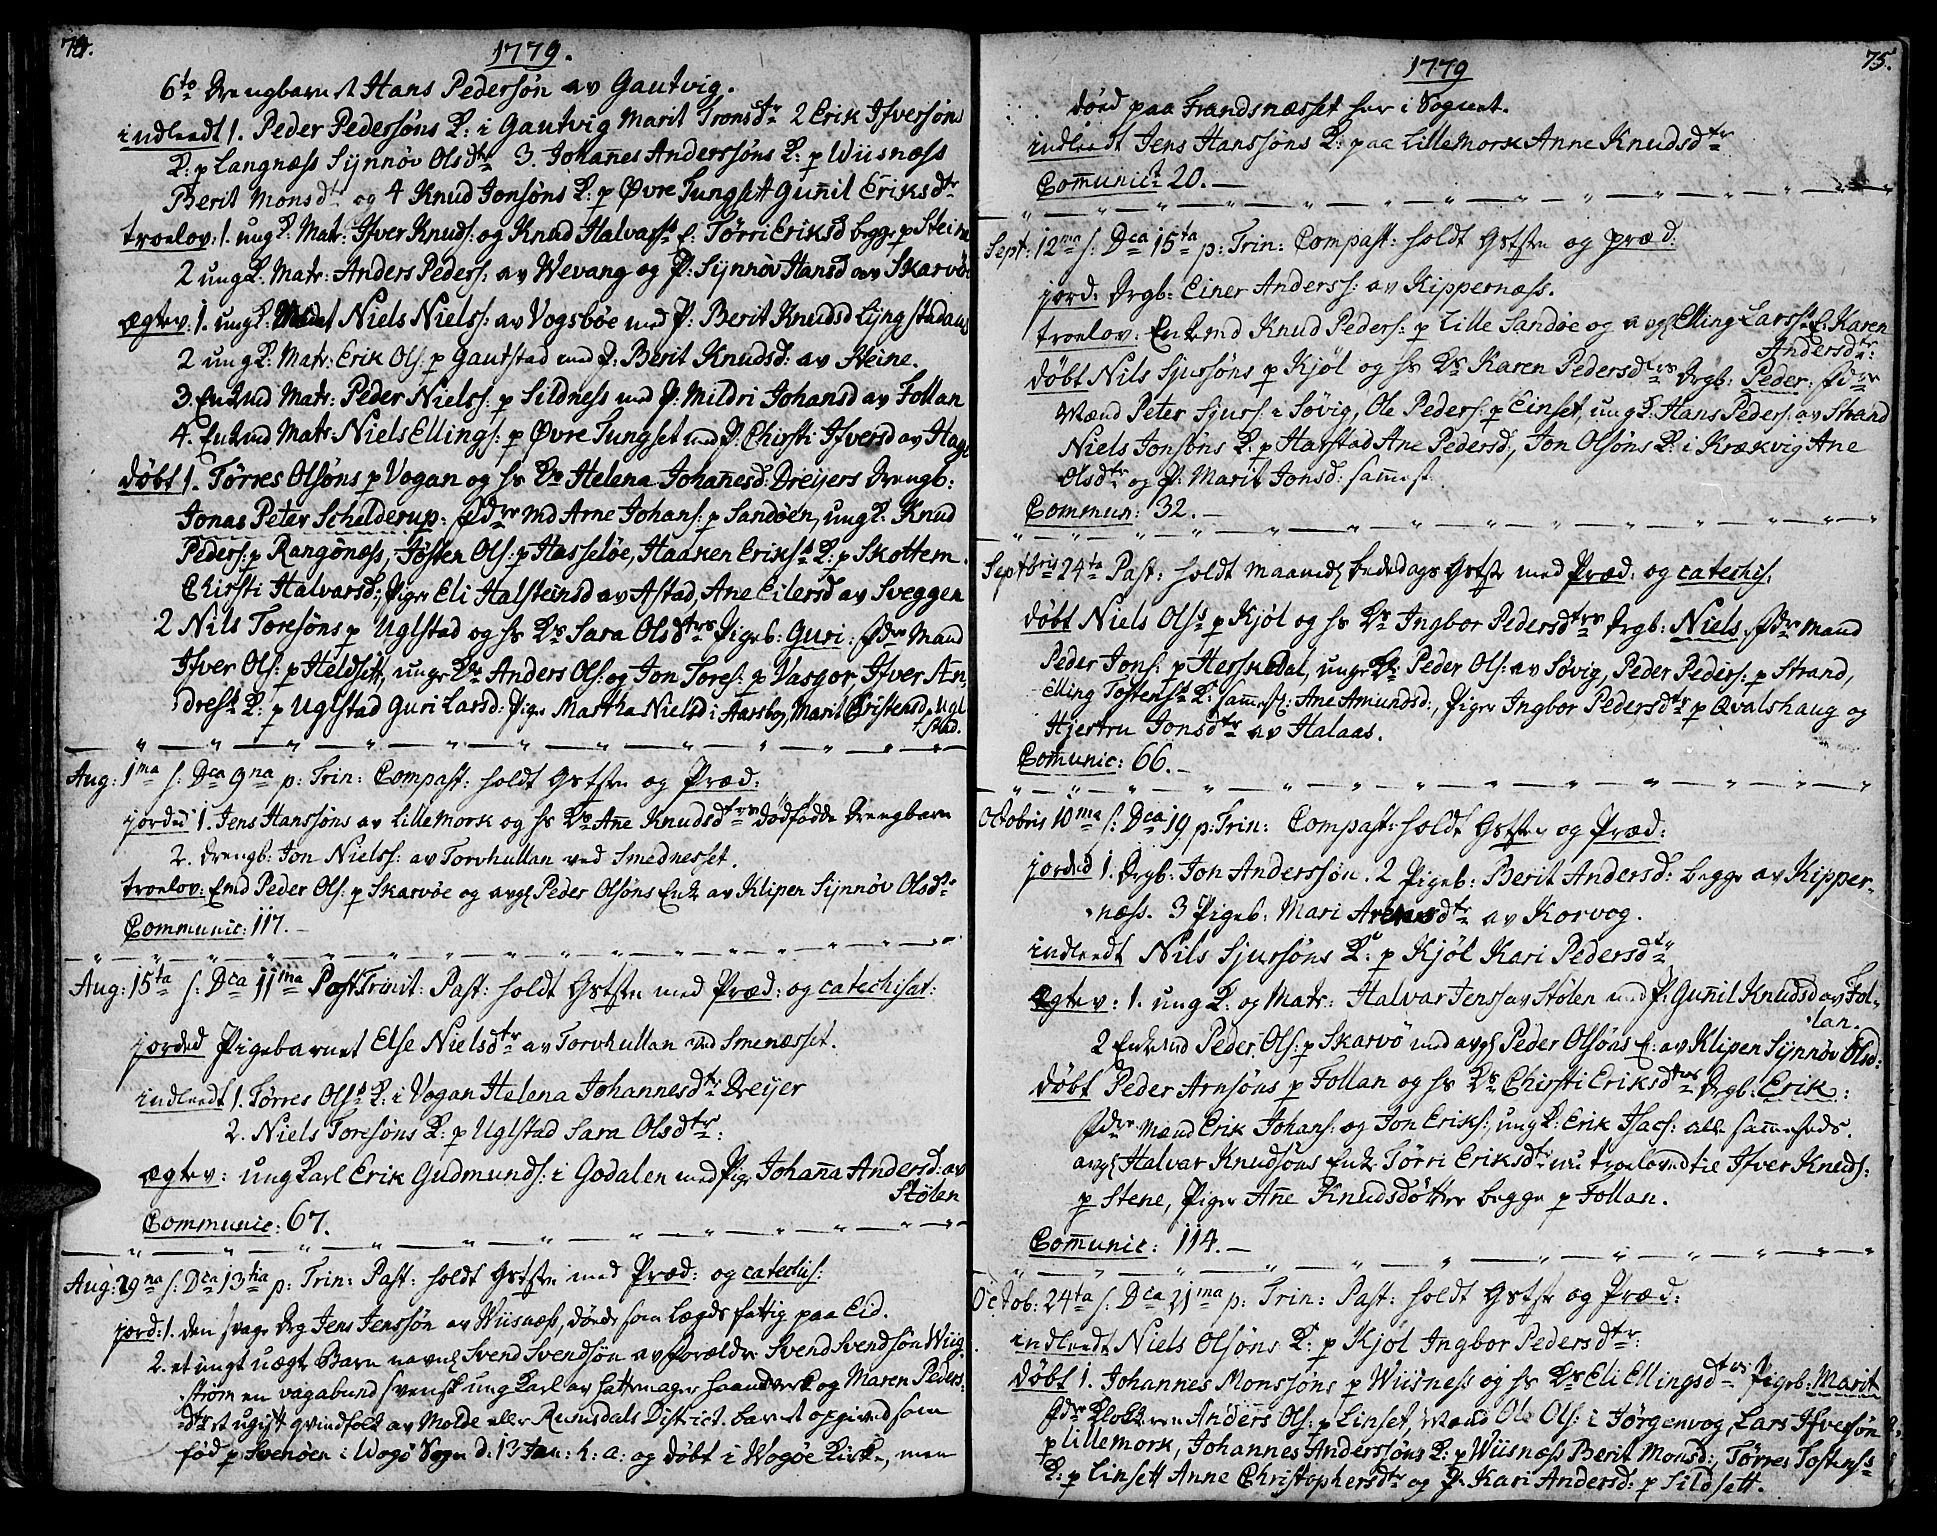 74.
1779.
6to Drengbarn 1 Hans Pedersøn av Gautvig.
indleedt 1. Peder Pedersøns K: i Gautvig Marit Tronsdtr 2 Erik Ifversøns
K: p Langnæss Synnøv Olsdtr 3. Johañes Anderssøns K: p Wiisnæss
Berit Monsdtr og 4 Knud Jonsøns K: p Øvre Tungsett Guñil Eriksdtr
troelov: 1. ung K: Matr: Ifver Knuds: og Knud Halvars E: Tørri Eriksd begge p Steine
2 ung K: Matr: Anders Peders: av Wevang og P: Synnøv Hansd av Skarvøe
Ægtev: 1. ung K: Niels Niels: av Vogsbøe med P: Berit Knudsd Lyngstad
2 ung K: Matr: Erik Ols: p Gautstad med P: Berit Knudsd: av Steine.
3. Enkmd Matr: Peder Niels: p Sildness med P: Mildri Johansd av Follan
4. Enkmd Matr: Niels Ellings: p Øvre Tungset med P: Chirsti Ifversd av Hage
døbt 1. Tørres Olsøns p Vogan og hs Ks Helena Johañesd: Dreijers Drengb:
Jonas Peter Schelderup: Fdre md Arne Johans: p Sandøen, ung K: Knud
Peders: p Rangønæss, Jøsten Ols: p Hasseløe, Haaken Eriks K: p Skottem
Chirsti Halvarsd:, Piger Eli Halsteinsd av Astad, Ane Eilersd av Sveggen
2 Nils Toresøns p Uglstad og hs Ks Sara Olsdtrs Pigeb: Guri: Fdre Mænd
Ifver Ols: p Heldsett, unge K Anders Ols: og Jon Tores: p Vasgor, Ifver An,
dres K: p Uglstad Guri Larsd: Piger Martha Nielsd i Aarsbog, Marit Cristensd Ugl
stad.
Aug: 1ma s: Dca 9na p: Trin: Compast: holdt Gstste og Præd:
jorded 1. Jens Hanssøns av Lillemork og hs Ks Añe Knudsdtrs dødfødde Drengbarn
2. Drengb: Jon Niels: av Torvhullan ved Smednesset.
troelov: Emd Peder Ols: p Skarvøe og avgl Peder Olsøns Enk av Klipen Synnøv Olsdtr
Communic: 117.
Aug: 15ta s: Dca 11ma Post Trinit: Past: holdt Gstste med Præd: og catechisat:
jorded Pigebarnet Else Nielsdtr av Torvhullan ved Smenæsset.
indleedt 1. Tørres Ols K: i Vogan Helena Johannesdtr Dreijer
2. Niels Toresøns K: p Uglstad Sara Olsdtr:
Ægtev: ung Karl Erik Gudmunds: i Godalen med Pige Johaña Andersd: av
Stølen
Communic: 67.
Aug: 29na s: Dca 13tia p: Trin: Past: holdt Gstste med Præd: og catechis:
jord: 1. den svage Drg Jens Jenssøn av Wiisnæss, døde som lægds fattig paa Eid.
2. et ungt uægte Barn navnl Svend Svendsøn av foreldre Svend Svendsøn Wiig,
strøm en vagabund svensk ung Karl av hattemager haandverk og Maren Peders
dtr et ugift qvindfolk av Molde eller Rumsdals District. barnet opgived som
fød p Svenøen i Wogø Sogn d: 13 Jan: h: a: og døbt i Wogøe Kirke, men
75.
1779
døed paa Frandsnæsset her i Sognet.
indleedt Jens Hanssøns K: paa Lillemork Anne Knudsdtr
Comunict 20.
Sept: 12ma s: Dca 15ta p: Trin: Compast: holdt Gstste og præd:
jord: Drgb: Einer Anderss: av Kippernæss.
troelov: Enkemd Knud Peders: p Lille Sandøe og avgl Elling Lars E: Karen
Andersdtr:
døbt Nils Sjursøns p Kjøl og hs Ks Karen Pedersdtrs Drgb: Peder: Fdre
Mænd Peter Sjurs: i Søvig, Ole Peders: p Einset, ung K: Hans Peders: av Strand
Niels Jonsøns K: p Harstad Ane Pedersd:, Jon Olsøns K: i Krækvig Ane
Olsdtr og P: Marit Jonsd: samest
Commun: 32.
Septbris 24ta Past: holdt maanedl bededags Gstste med Præd: og catechis:
døbt Niels Ols p Kjøl og hs Ks Ingbor Pedersdtrs Drgb: Niels. Fdre Mænd
Peder Jons: p Herskedal, unge K Peder Ols: av Søvig, Peder Peders: p Strand,
Elling Tostens K: sammest: Ane Amundsd:, Piger Ingbor Pedersdtr p Qvalshaug og
Hjertru Jonsdtr av Halaas.
Comunic: 66.
Octobris 10ma s: Dca 19 p: Trin: Compast: holdt Gstste og Præd:
jorded 1. Drgb: Jon Anderssøn. 2 Pigeb: Berit Andersd: begge av Kipper,
næss. 3 Pigeb: Mari Arensdtr av Korvog.
indleedt Nils Sjursøns K: p Kjøl Kari Pedersdtr
Ægtev: 1. ung K: og Matr: Halvar Jens av Stølen med P: Guñil Knudsd av Fol,
lan.
2 Enkemd Peder Ols: p Skarvø med avgl Peder Olsøns E: av Klipen Synnøv Olsd:
døbt Peder Arnsøns p Follan og hs Ks Chirsti Eriksdtrs Drgb: Erik:
Fdre Mænd Erik Johans: og Jon Eriks:, ung K: Erik Isacs: alle sammesteds.
avgl Halvar Knudsøns Enk: Tørri Eriksdtr nu troeloved til Ifver Knuds:
p Stene, Piger Añe Knudsdøtter begge p Follan.
Comunic: 114.
Octob: 24ta s: Dca 21ma p: Trin: Past: holdt Gstste og Præd:
indleedt Niels Olsøns K: p Kjøl Ingbor Pedersdtr.
døbt 1. Johannes Monssøns p Wiisness og hs Ks Eli Ellingsdtrs Pigeb: Marit
Fdre Klokkeren Anders Ols: p Linset, Mænd Ole Ols: i Jørgenvog, Lars Ifversøn
p Lillemork, Johannes Anderssøns K: p Wiisnæss Berit Monsd:, Tørres Tostens
K: p Linsett Anne Christophersdtr og P: Kari Andersd: p Sildsett.